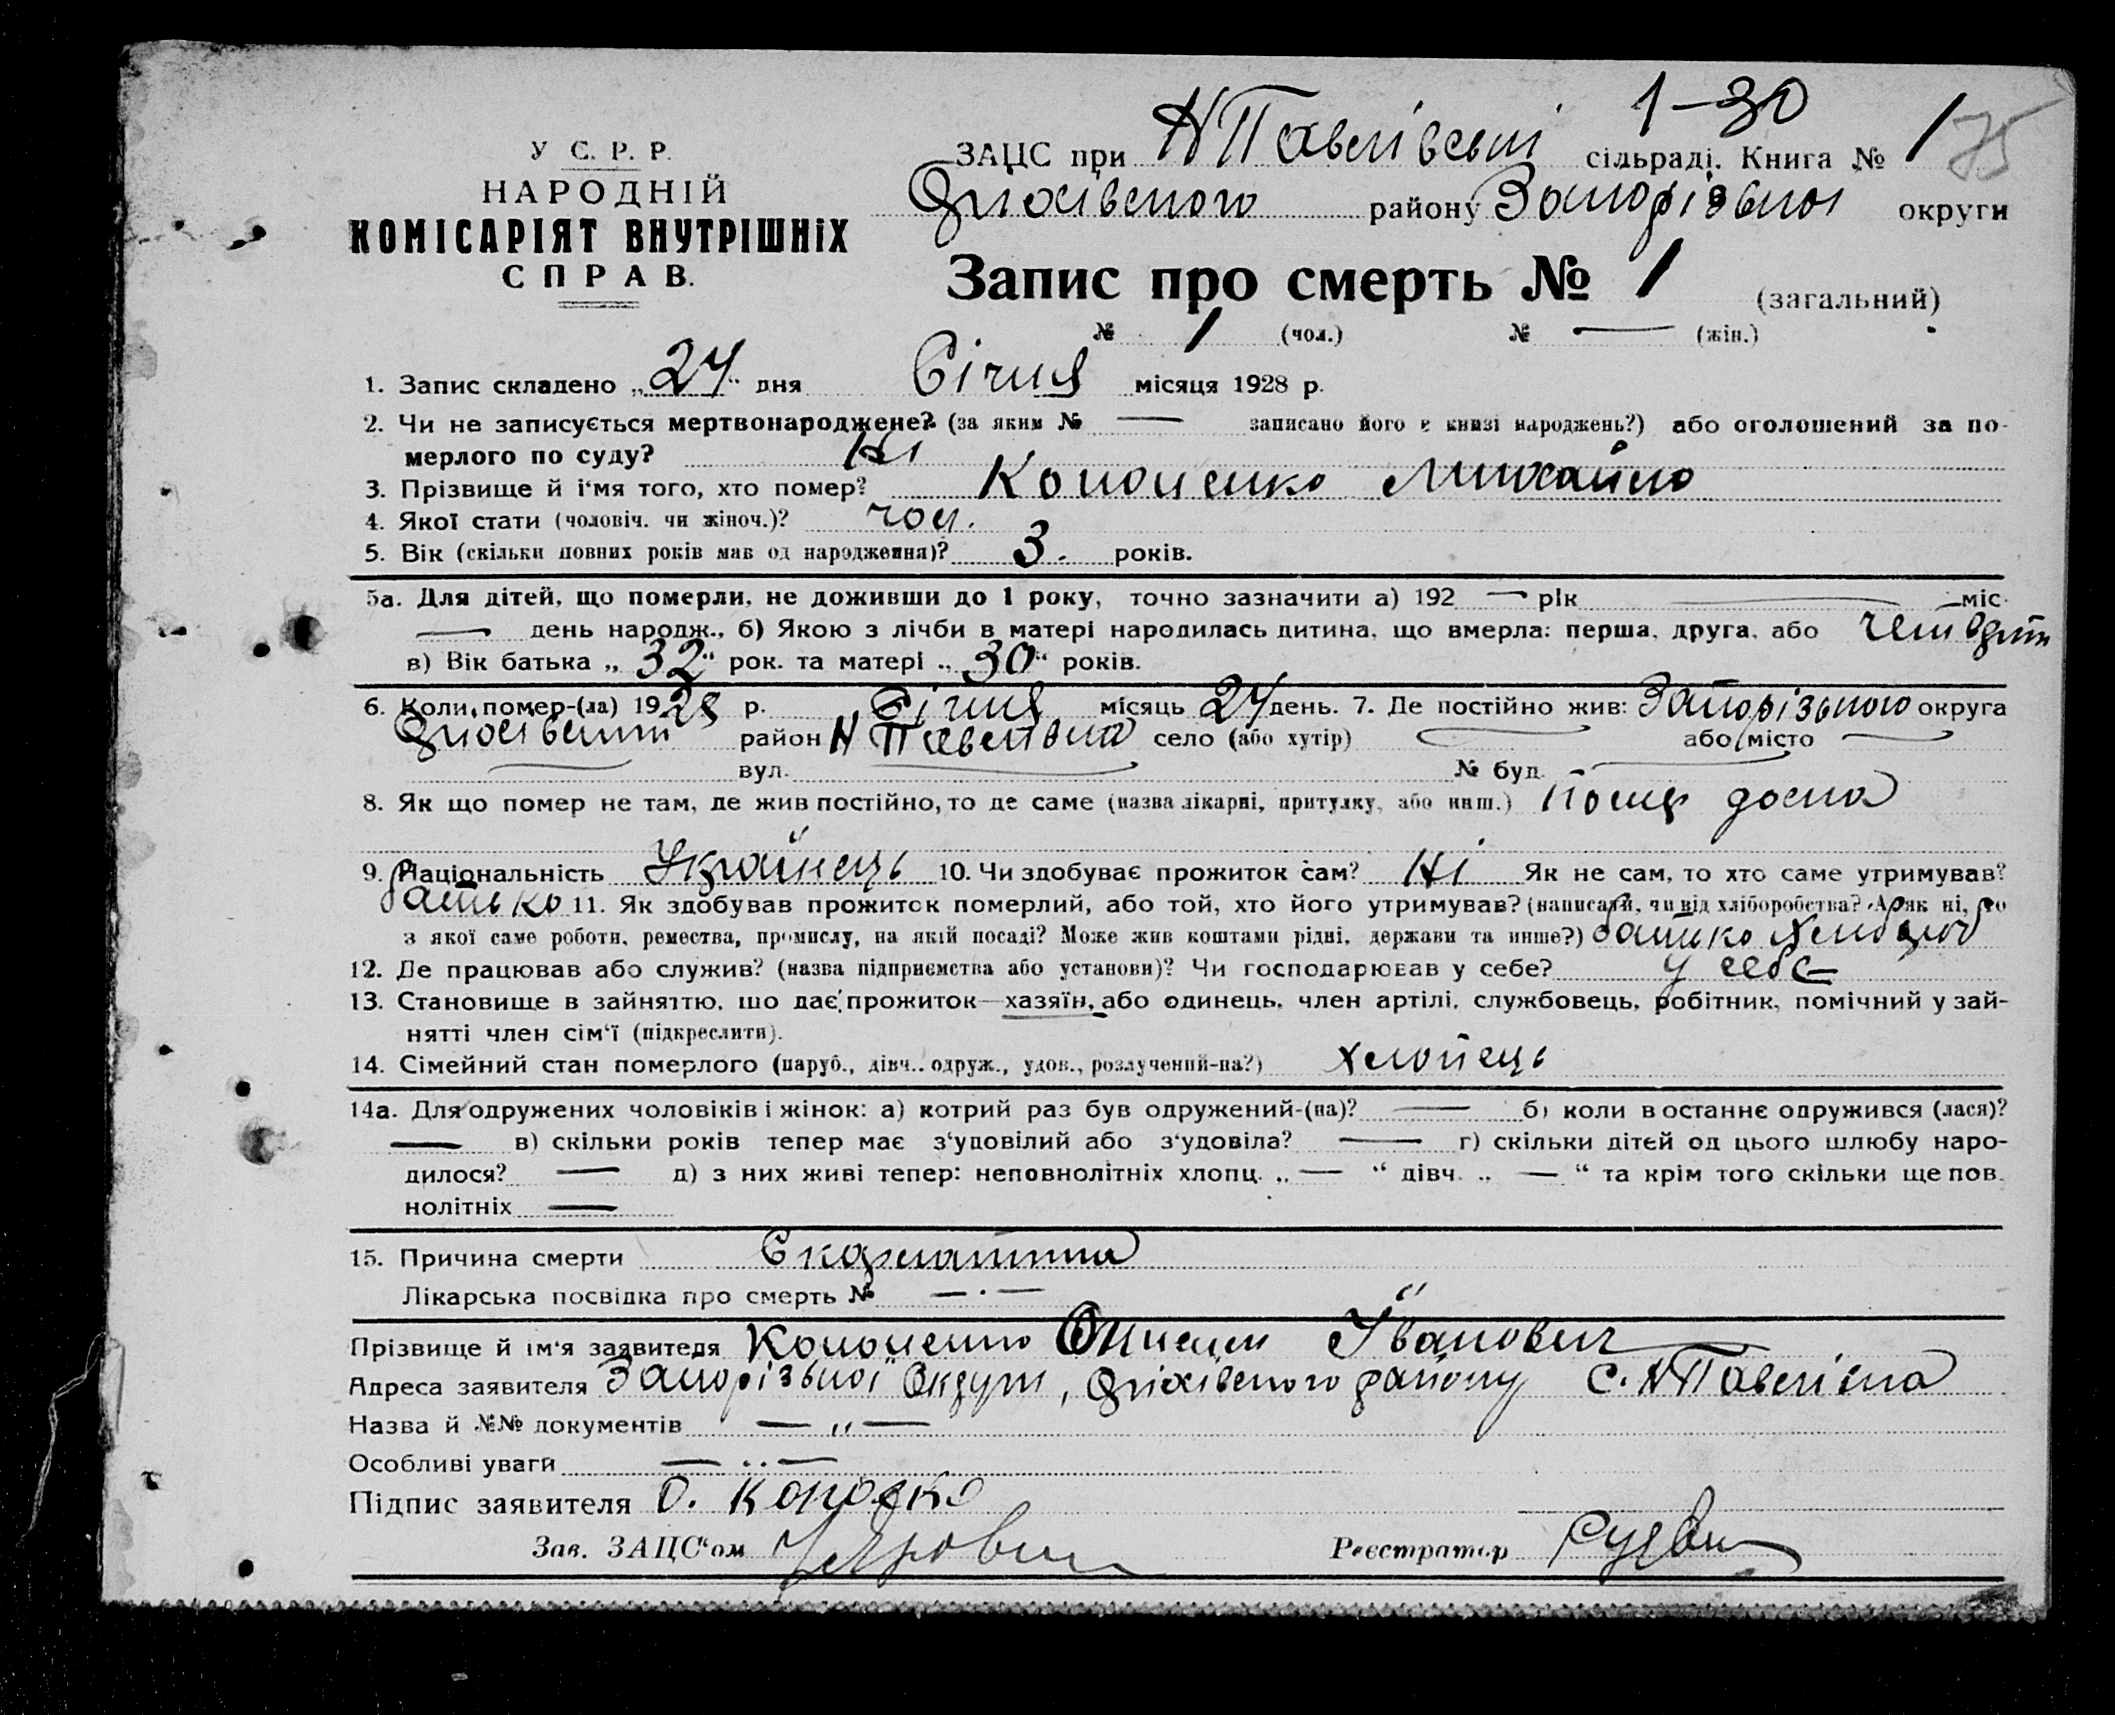 1-30
У С. Р. Р.
НАРОДНІЙ
КОМІСАРІЯТ ВНУТРІШНІХ
СПРАВ.
ЗАЦС при Н Павлівській сільраді. Книга № 1 75
Оріхівського району Запорізької округи
Запис про смерть № 1 (загальний)
№ 1 (чол.) № — (жін.)
1. Запис складено „24“ дня Січня місяця 1928 р.
2. Чи не записується мертвонароджене? (за яким № — записано його в книзі народжень?) або оголошений за по-
мерлого по суду? Ні
3. Прізвище й і'мя того, хто помер? Кононенко Михайло
4. Якої стати (чоловіч. чи жіноч.)? чол.
5. Вік (скільки повних років мав од народження)? 3. років.
5а. Для дітей, що померли, не доживши до 1 року, точно зазначити а) 192 — рік — міс.
— день народж., б) Якою з лічби в матері народилась дитина, що вмерла: перша, друга, або
в) Вік батька „32“ рок. та матері „30“ років.
6. Коли помер-(ла) 1928 р. Січня місяць 24 день. 7. Де постійно жив: Запорізького округа
Оріхівський район Н Павлівка село (або хутір) — або місто —
— вул. — № буд. —
8. Як що помер не там, де жив постійно, то де саме (назва лікарні, притулку, або инш.) Помер дома
9. Національність Українець 10. Чи здобуває прожиток сам? Ні Як не сам, то хто саме утримував?
батько 11. Як здобував прожиток померлий, або той, хто його утримував? (написати, чи від хліборобства? А як ні, то
з якої саме роботи, ремества, промислу, на якій посаді? Може жив коштами рідні, держави та инше?) батько Хлібороб
12. Де працював або служив? (назва підприємства або установи)? Чи господарював у себе? у себе
13. Становище в зайнятті, що дає прожиток—хазяїн, або одинець, член артілі, службовець, робітник, помічний у зай-
нятті член сім'ї (підкреслити).
14. Сімейний стан померлого (паруб., дівч., одруж., удов., розлучений-на?) Хлопець
14а. Для одружених чоловіків і жінок: а) котрий раз був одружений-(на)? — б) коли в останнє одружився (лася)?
— в) скільки років тепер має з'удовілий або з'удовіла? — г) скільки дітей од цього шлюбу наро-
дилося? — д) з них живі тепер: неповнолітніх хлопц. „—“ дівч. „—“ та крім того скільки ще пов.
нолітніх —
15. Причина смерти Скарлатина
Лікарська посвідка про смерть № — . —
Прізвище й ім'я заявителя Кононенко Іванович
Адреса заявителя Запорізької Округи, Оріхівського району С. Н Павлівка
Назва й №№ документів — „ —
Особливі уваги — .. —
Підпис заявителя О.
Зав. ЗАЦС'ом
Реєстратор